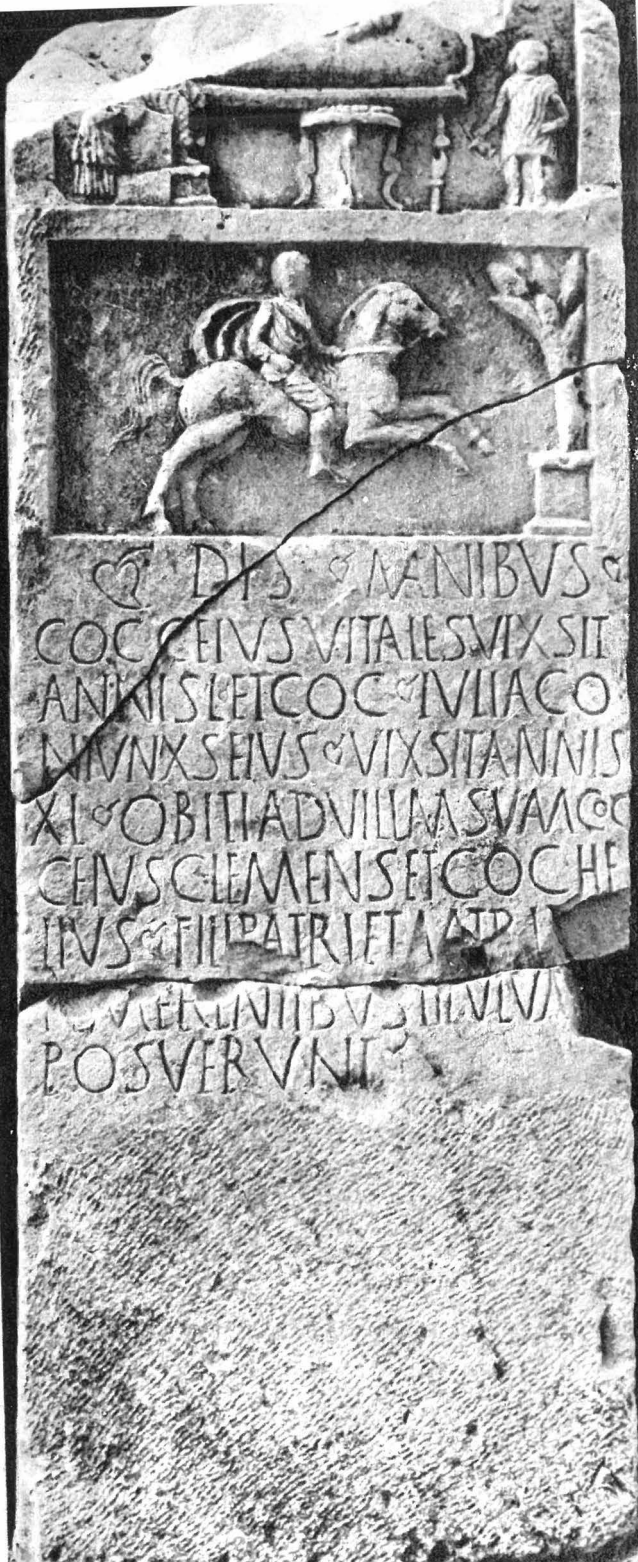 ❦ DIS ❦ MANIBVS ❦
COCCEIVS VITALES VIXSIT
ANNIS L ET COC ❦ IVLIA CO
NIVNXS EIVS ❦ VIXSIT ANNIS
XL ❦ OBITI AD VILLAM SVAM COC
CEIVS CLEMENS ET COC HE
LIVS ❦ FILI PATRI ET MATRI
MERENTIBVS TITVLVM
POSVERVNT ❦